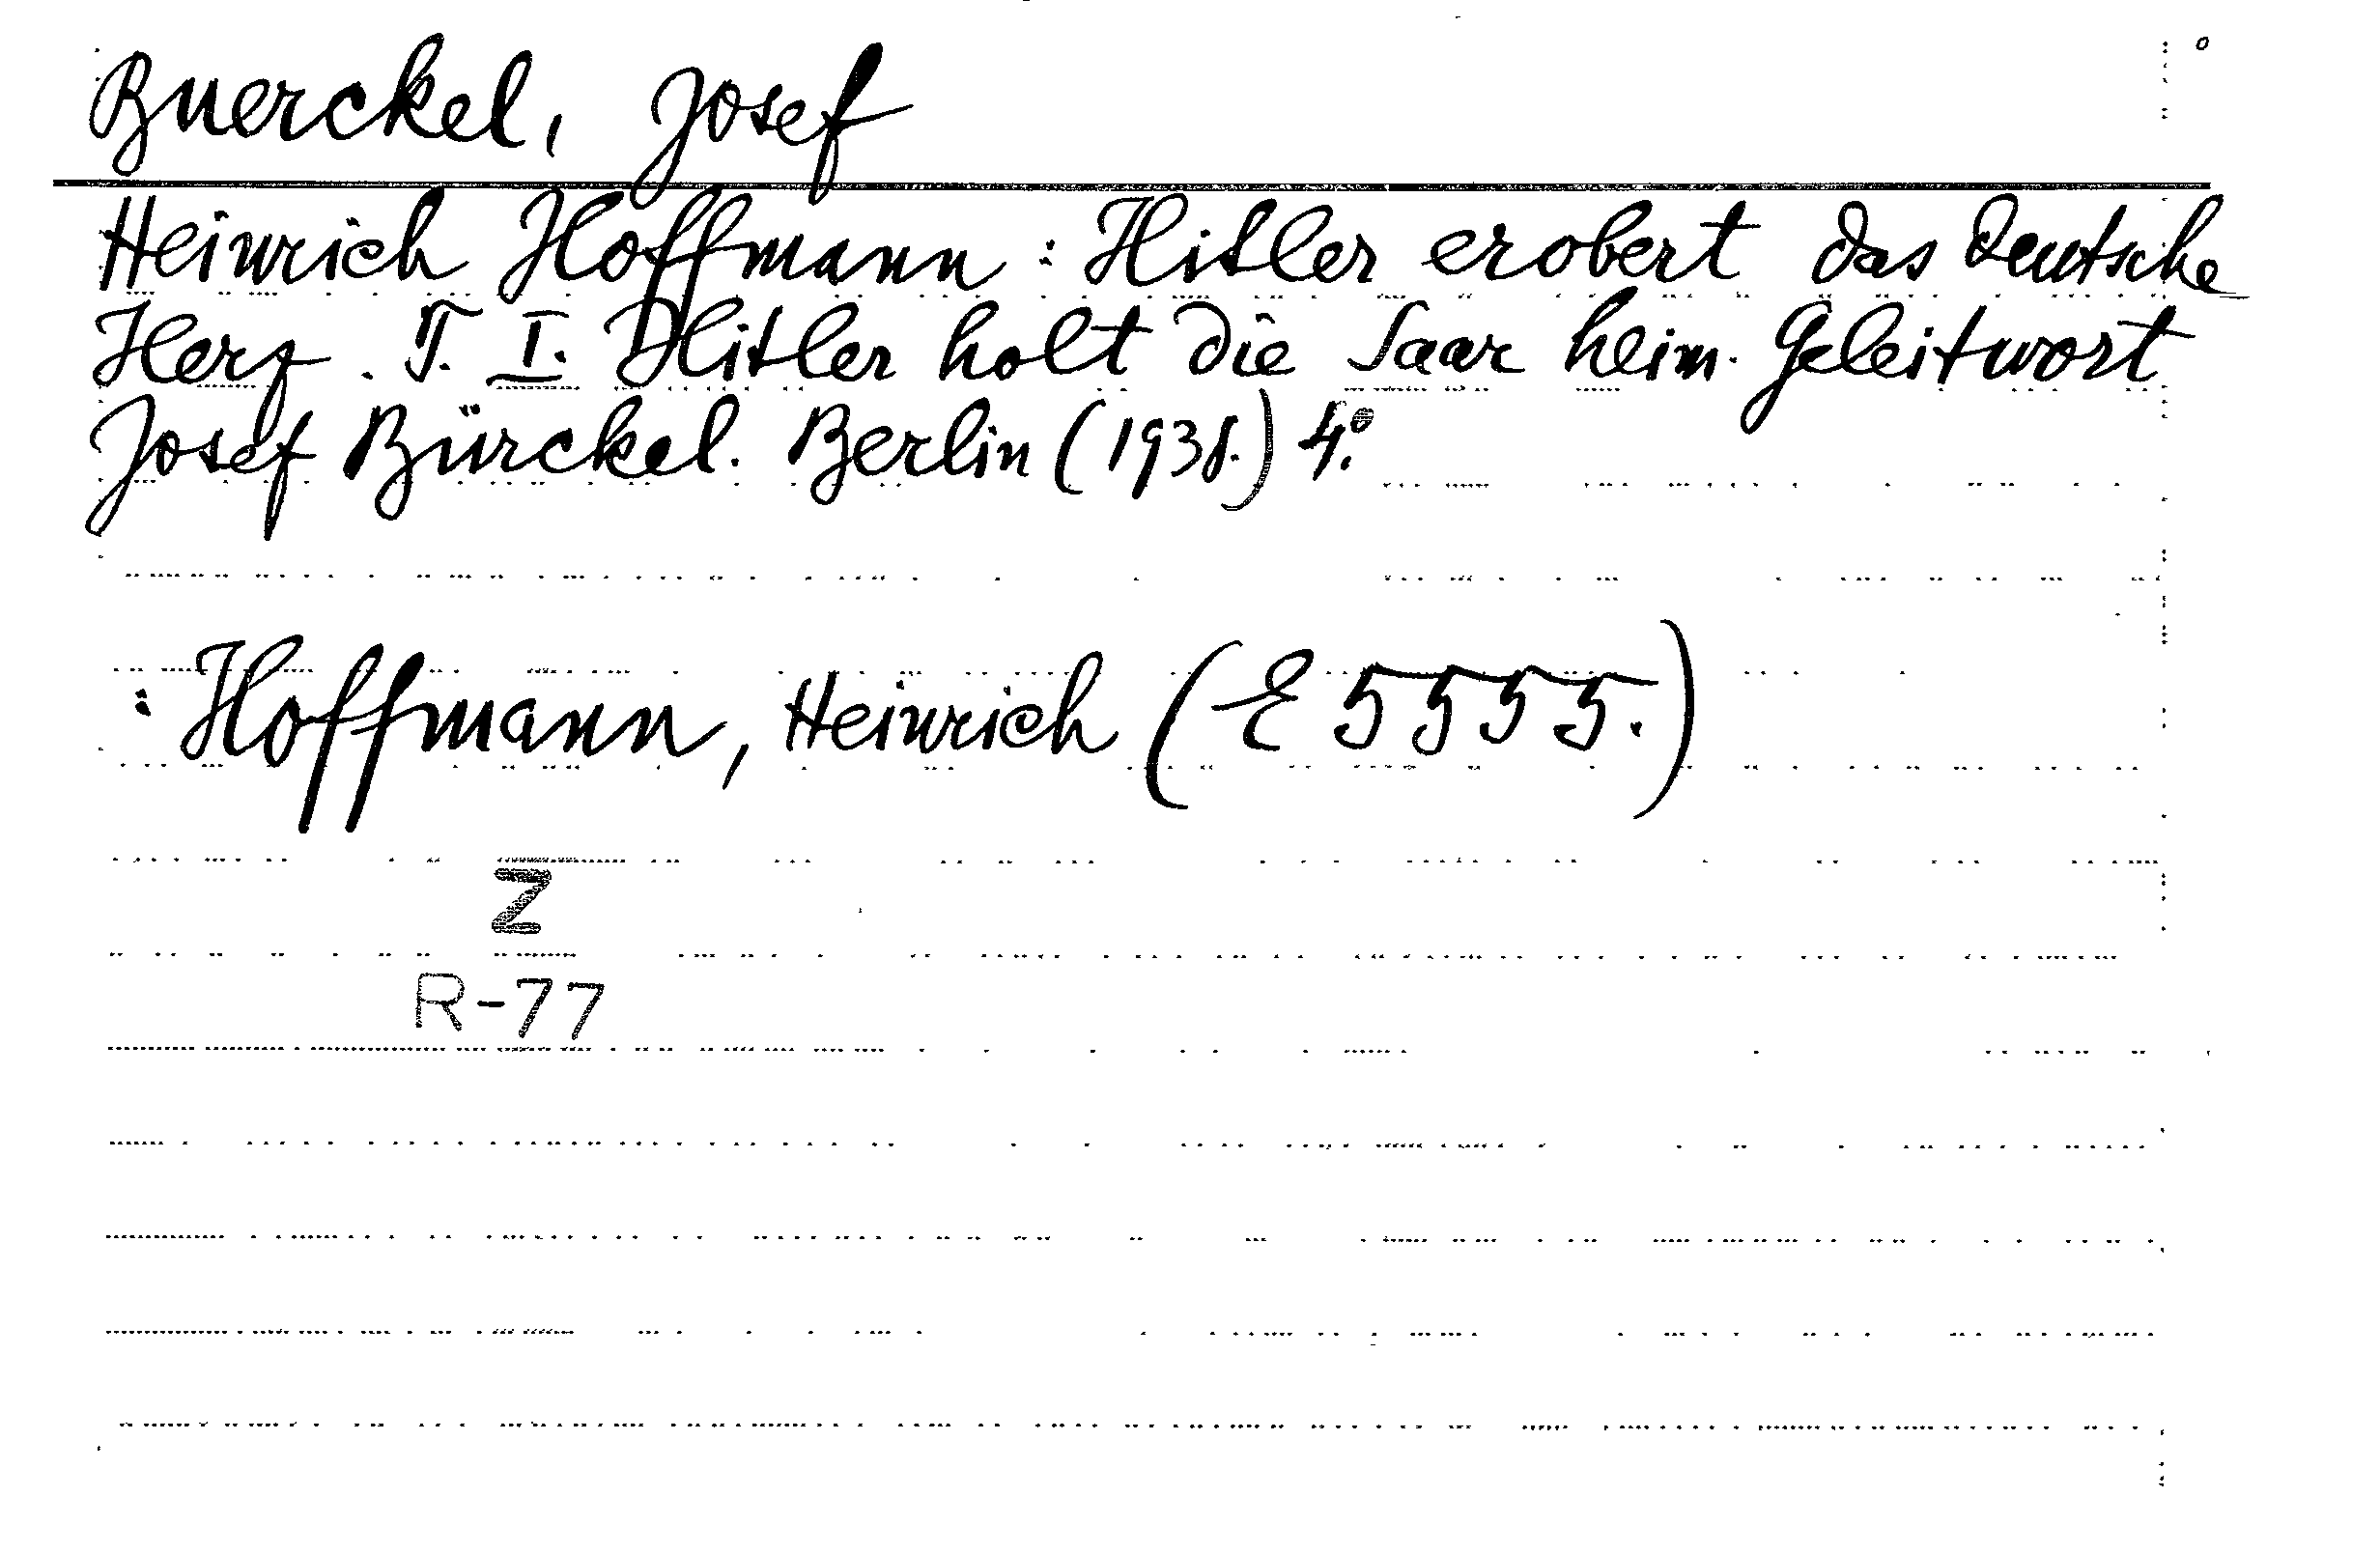 Buerckel, Josef
Heinrich Hoffmann: Hitler erobert das deutsche
Herz. T. I. Hitler holt die Saar heim. Geleitwort
Josef Bürckel. Berlin (1938.) 4°.
: Hoffmann, Heinrich (E 5555.)
Z
R-77